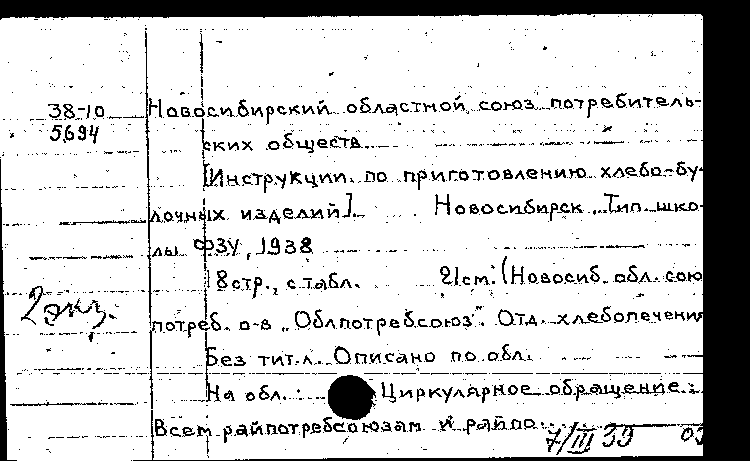 38-10
5694
Новосибирский областной союз потребитель-
ских обществ.
[Инструкции по приготовлению хлебо-бу-
лочных изделий]. Новосибирск, Тип. шко-
лы ФЗУ, 1938
18 стр., с табл. 21 см. (Новосиб. обл. сою
2 экз.
потреб. о-в „Облпотребсоюз". Отд. хлебопечения
Без тит.л. Описано по обл.
На обл.: Циркулярное обращение:
Всем райпотребсоюзам и райпо.
7/III 39 03